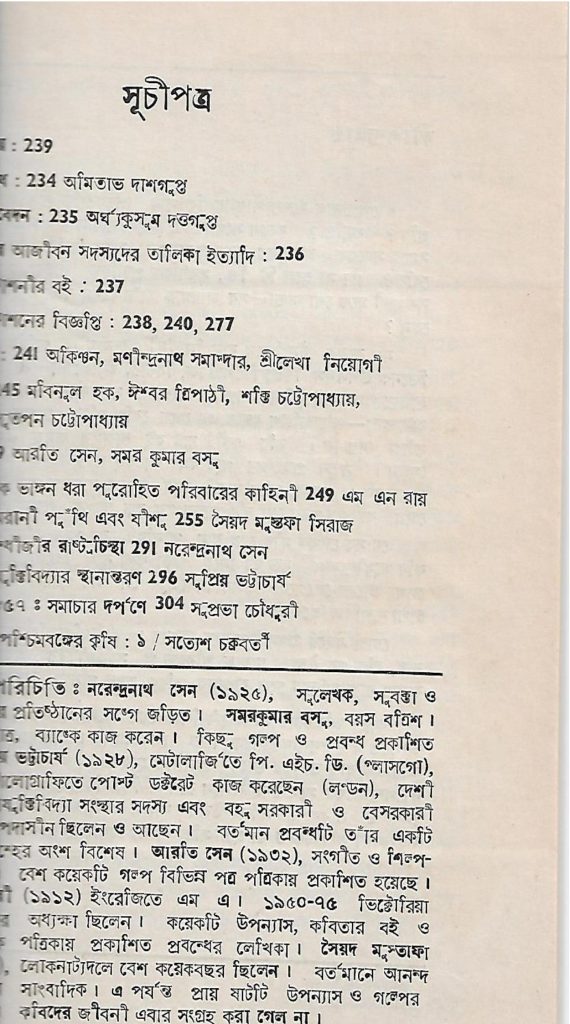 সূচীপত্র
: 239
: 234 অমিতাভ দাশগুপ্ত
বেদন : 235 অর্ঘ্যকুসুম দত্তগুপ্ত
আজীবন সদস্যদের তালিকা ইত্যাদি : 236
শনীর বই : 237
শনের বিজ্ঞপ্তি : 238, 240, 277
: 241 অকিঞ্চন, মণীন্দ্রনাথ সমাদ্দার, শ্রীলেখা নিয়োগী
45 মবিনুল হক, ঈশ্বর ত্রিপাঠী, শক্তি চট্টোপাধ্যায়,
তপন চট্টোপাধ্যায়
আরতি সেন, সমর কুমার বসু
ক ভাঙ্গন ধরা পুরোহিত পরিবারের কাহিনী 249 এম এন রায়
রানী পুঁথি এবং যীশু 255 সৈয়দ মুস্তফা সিরাজ
ধীজীর রাষ্ট্রচিন্তা 291 নরেন্দ্রনাথ সেন
ুক্তিবিদ্যার স্থানান্তরণ 296 সুপ্রিয় ভট্টাচার্য
৫৭ : সমাচার দর্পণে 304 সুপ্রভা চৌধুরী
পশ্চিমবঙ্গের কৃষি : ১ / সত্যেশ চক্রবর্তী
পরিচিতি : নরেন্দ্রনাথ সেন (১৯২৫), সুলেখক, সুবক্তা ও
প্রতিষ্ঠানের সঙ্গে জড়িত। সমরকুমার বসু, বয়স বত্রিশ।
ব্যাঙ্কে কাজ করেন। কিছু গল্প ও প্রবন্ধ প্রকাশিত
ভট্টাচার্য (১৯২৮), মেটালার্জিতে পি. এইচ. ডি. (গ্লাসগো),
লোগ্রাফিতে পোস্ট ডক্টরেট কাজ করেছেন (লণ্ডন), দেশী
যুক্তিবিদ্যা সংস্থার সদস্য এবং বহু সরকারী ও বেসরকারী
পদাসীন ছিলেন ও আছেন। বর্তমান প্রবন্ধটি তাঁর একটি
ন্থের অংশ বিশেষ। আরতি সেন (১৯৩২), সংগীত ও শিল্প-
বেশ কয়েকটি গল্প বিভিন্ন পত্র পত্রিকায় প্রকাশিত হয়েছে।
রী (১৯১২) ইংরেজিতে এম এ। ১৯৫০-৭৫ ভিক্টোরিয়া
অধ্যক্ষা ছিলেন। কয়েকটি উপন্যাস, কবিতার বই ও
পত্রিকায় প্রকাশিত প্রবন্ধের লেখিকা। সৈয়দ মুস্তাফা
), লোকনাট্যদলে বেশ কয়েকবছর ছিলেন। বর্তমানে আনন্দ
সাংবাদিক। এ পর্যন্ত প্রায় ষাটটি উপন্যাস ও গল্পের
কবিদের জীবনী এবার সংগ্রহ করা গেল না।